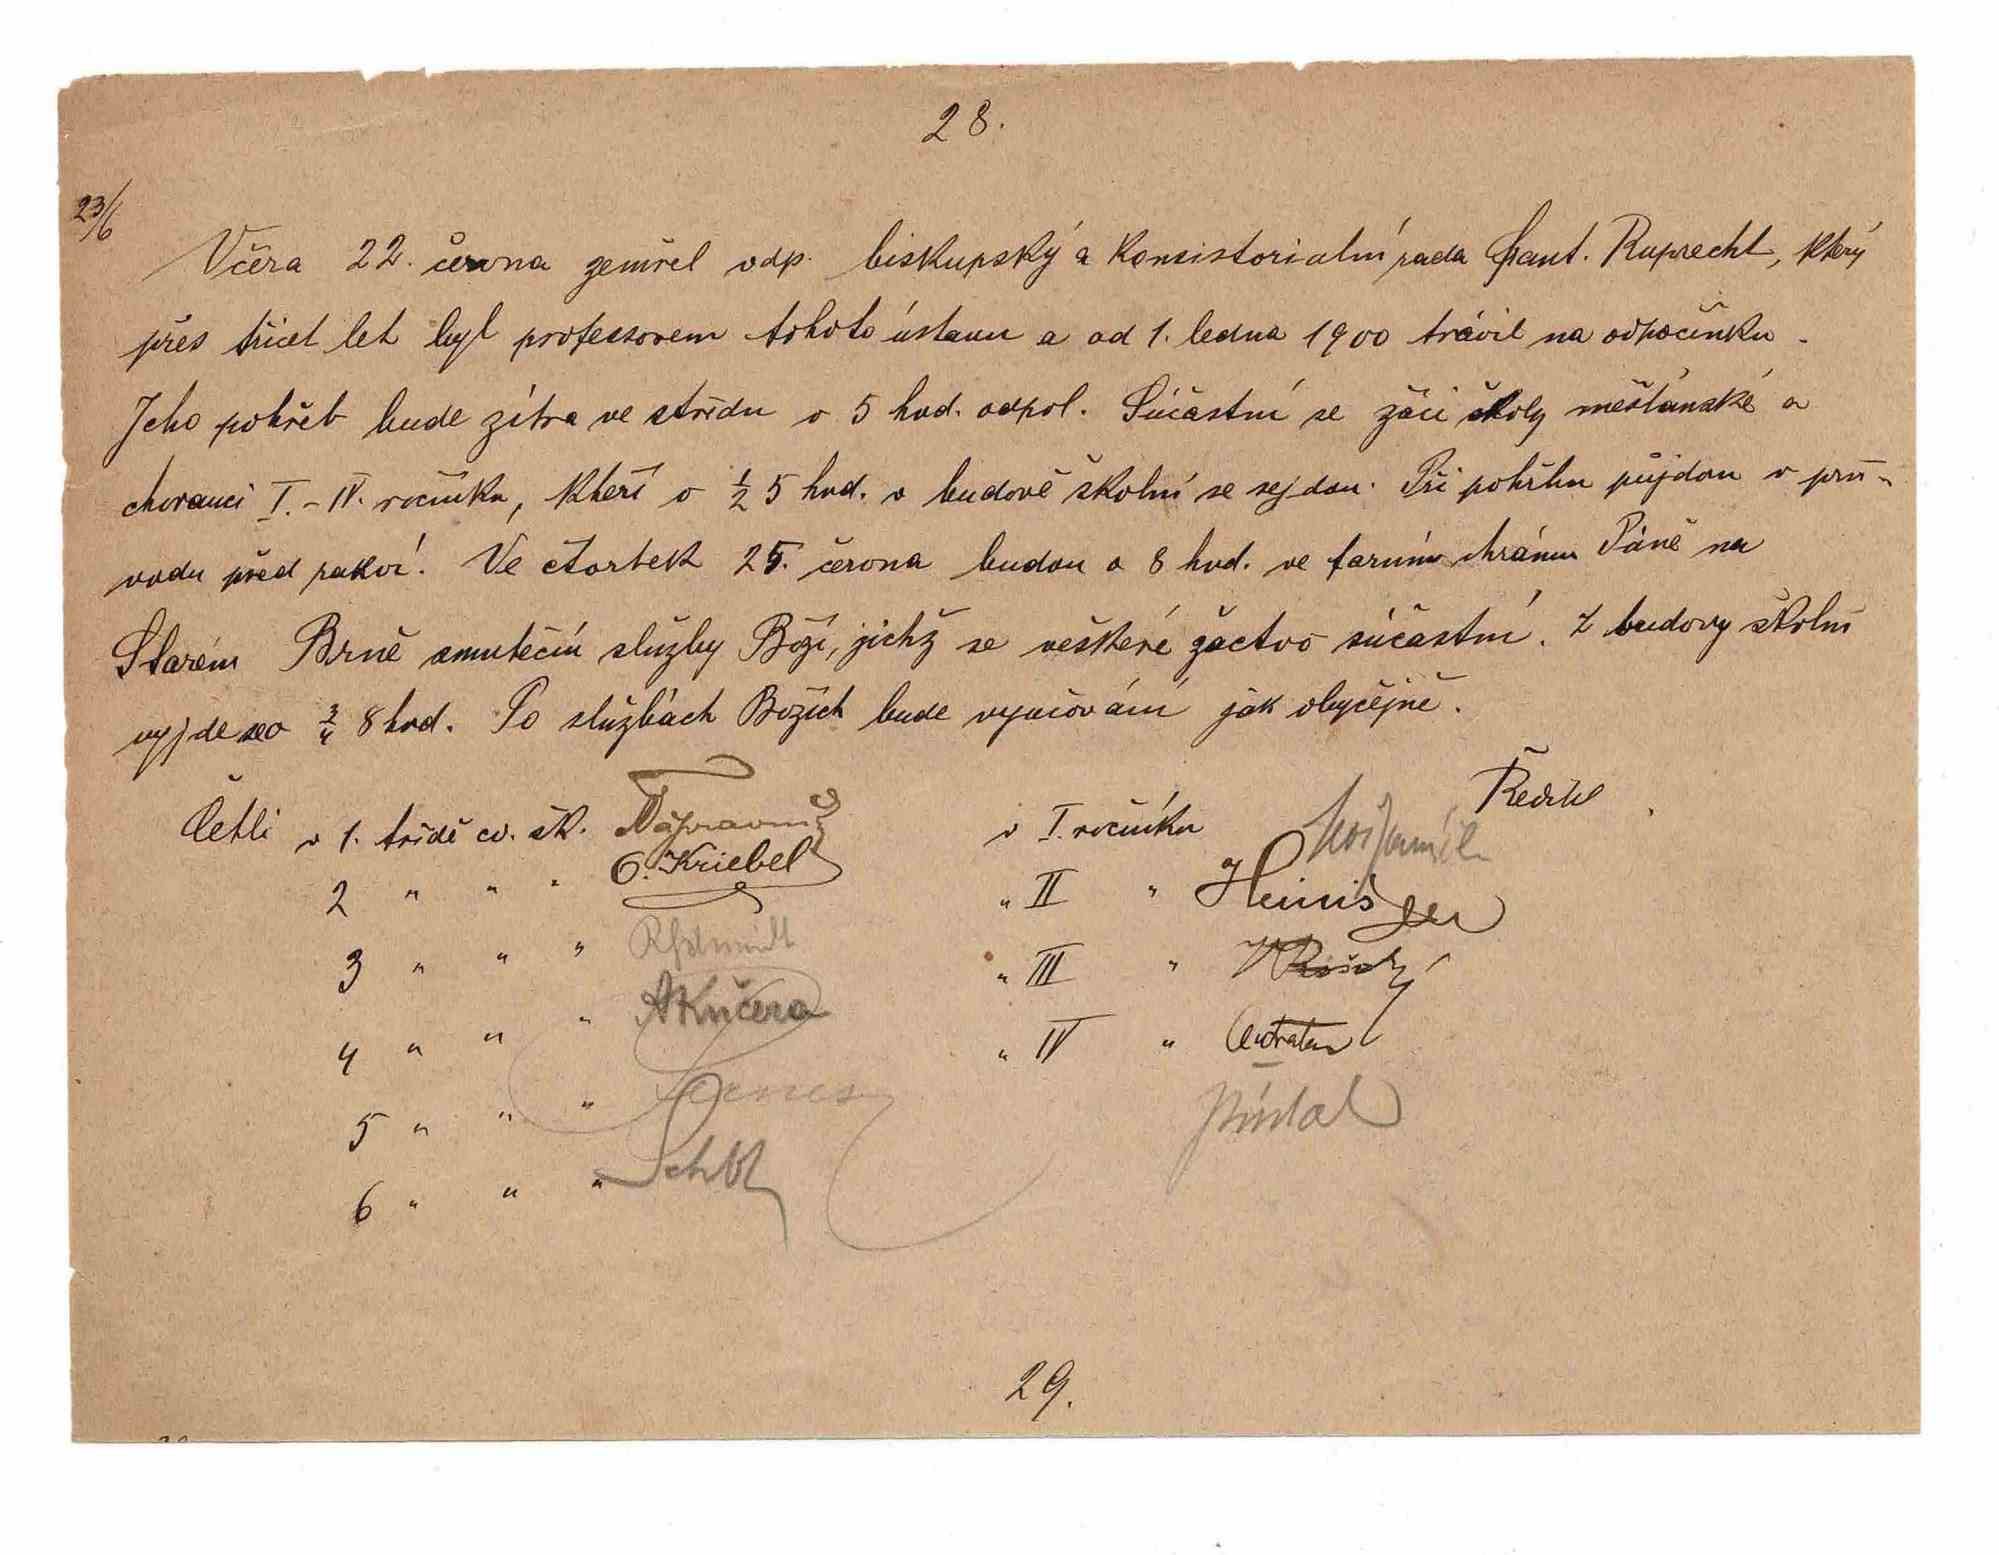 28.
23/6
Včera 22. června zemřel vdp. biskupský a konsistorialní rada Frant. Ruprecht, který
přes třicet let byl professorem tohoto ústavu a od 1. ledna 1900 trávil na odpočinku.
Jeho pohřeb bude zítra ve středu o 5 hod. odpol. Súčastní se žáci školy měšťanské a
chovanci I.–IV. ročníku, kteří o ½ 5 hod. v budově školní se sejdou. Při pohřbu půjdou v prů-
vodu před rakví. Ve čtvrtek 25. června budou o 8 hod. ve farním chrámu Páně na
Starém Brně smuteční služby Boží, jichž se veškeré žactvo súčastní. Z budovy školní
vyjde se o ¾ 8 hod. Po službách Božích bude vyučování jak obyčejně.
Ředitel
Četli v 1. třídě cv. šk. Nápravník v I. ročníku
2 " " " O. Kriebel " II "
3 " " " " III "
4 " " " AKučera " IV "
5 " " "
6 " " "
29.